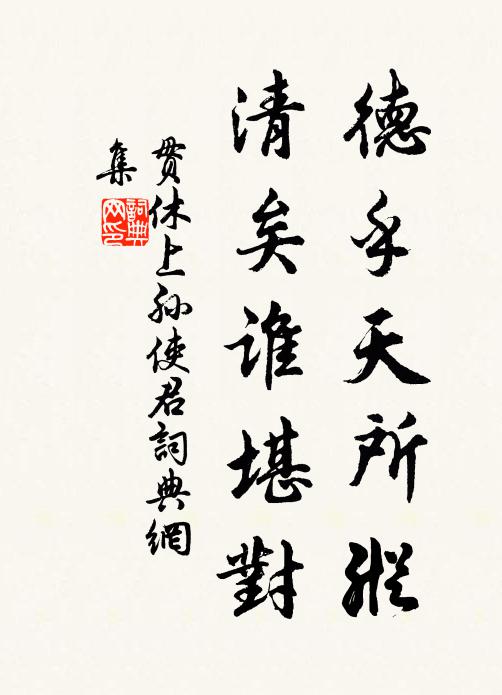 德乎天所縱
清矣誰堪對
貫休上孙使君詞典網
集
詞典
网印